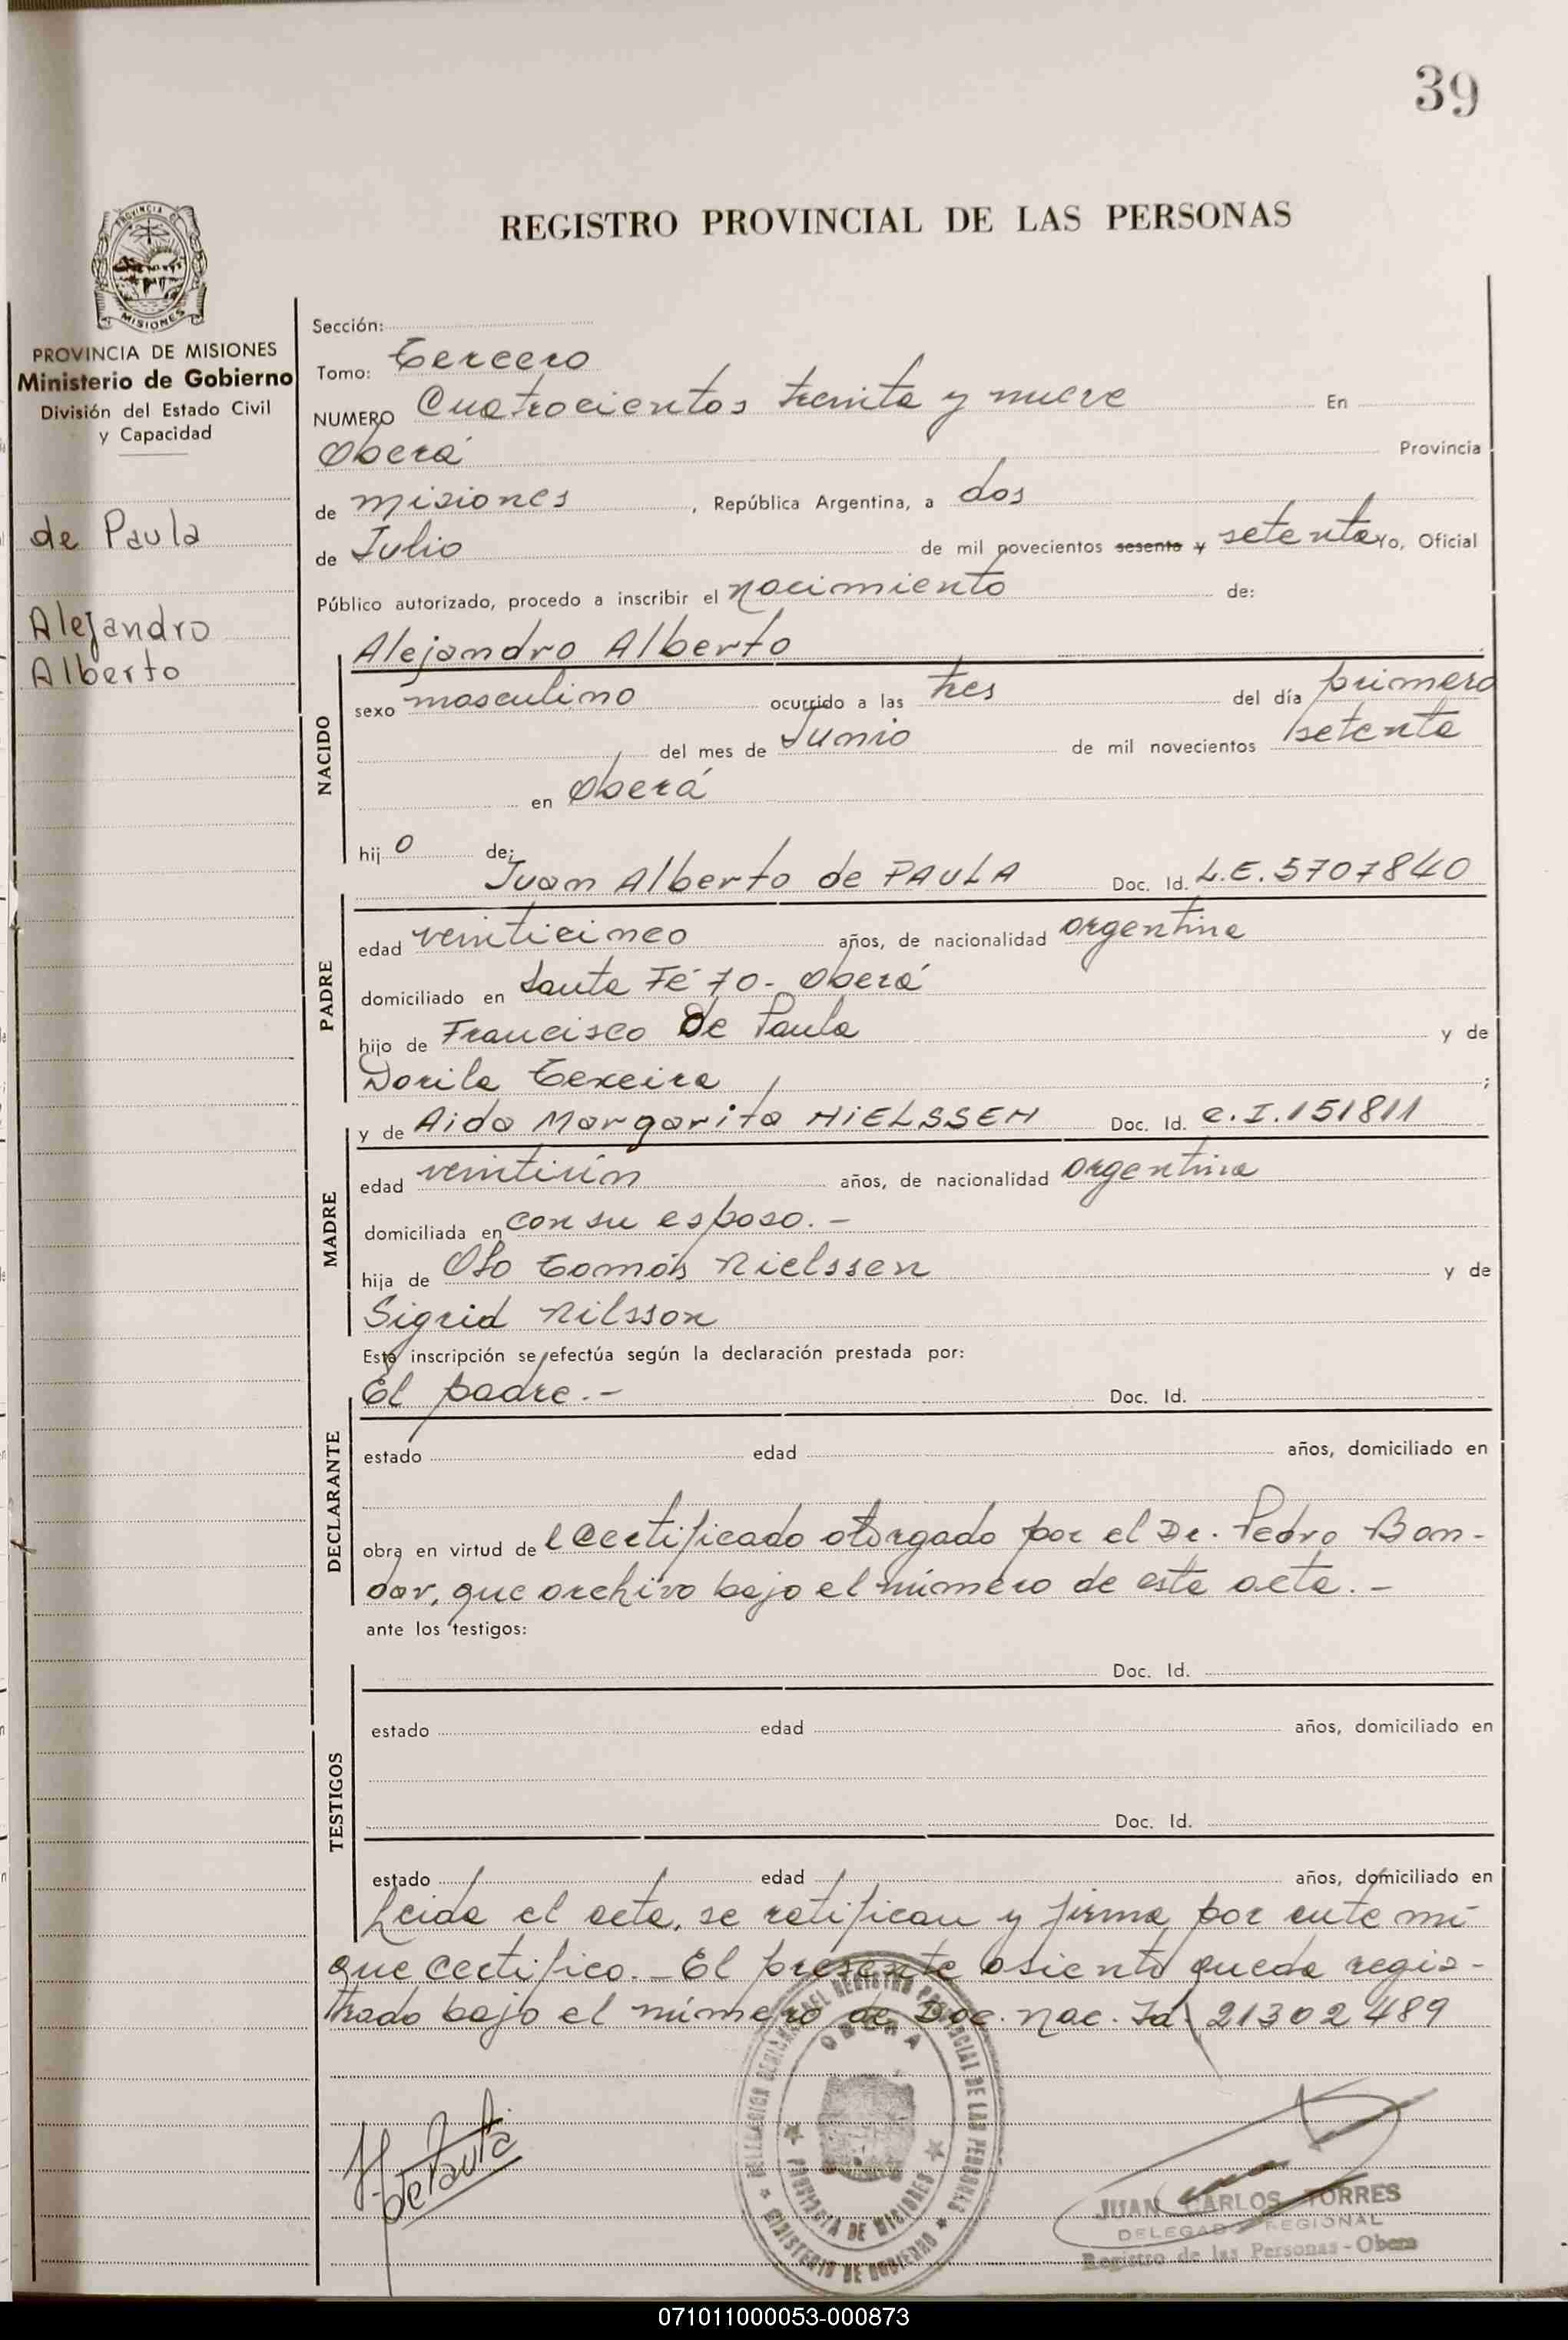 39
REGISTRO PROVINCIAL DE LAS PERSONAS
PROVINCIA DE MISIONES
PROVINCIA DE MISIONES
Ministerio de Gobierno
División del Estado Civil
y Capacidad
de Paula
Alejandro
Alberto
Sección:
Tomo: Tercero
NUMERO Cuatrocientos treinta y nueve En
Oberá Provincia
de Misiones, República Argentina, a dos
de Julio de mil novecientos sesenta y setenta Yo, Oficial
Público autorizado, procedo a inscribir el nacimiento de:
Alejandro Alberto
NACIDO
sexo masculino ocurrido a las tres del día primero
del mes de Junio de mil novecientos setenta
en Oberá
hijo de:
Juan Alberto de PAULA Doc. Id. L.E. 5707840
PADRE
edad veinticinco años, de nacionalidad argentina
domiciliado en Santa Fé 70- Oberá
hijo de Francisco de Paula y de
Dorila Texeira ;
y de Aida Margarita NIELSSEN Doc. Id. C.I. 151811
MADRE
edad veintiún años, de nacionalidad argentina
domiciliada en con su esposo.-
hija de Olo Tomás Nielssen y de
Sigrid Nilsson
Esta inscripción se efectúa según la declaración prestada por:
El padre.- Doc. Id.
DECLARANTE
estado edad años, domiciliado en
obra en virtud del certificado otorgado por el Dr. Pedro Bon-
dar, que archivo bajo el número de esta acta.-
ante los testigos:
Doc. Id.
TESTIGOS
estado edad años, domiciliado en
Doc. Id.
estado edad años, domiciliado en
Leida el acta, se ratifican y firma por ente mi
que certifico.- El presente asiento queda regis-
trado bajo el número de Doc. Nac. Id. 21302489
DELEGACION REGIONAL DEL REGISTRO PROVINCIAL DE LAS PERSONAS
OBERA
PROVINCIA DE MISIONES
MINISTERIO DE GOBIERNO
de Paula
JUAN CARLOS TORRES
DELEGADO REGIONAL
Registro de las Personas - Obera
071011000053-000873